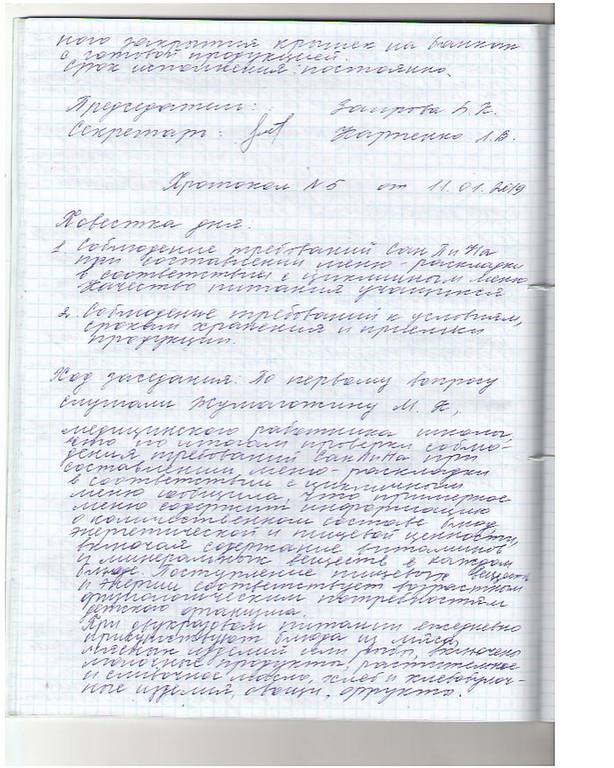 ного закрытия крышек на банках
с готовой продукцией.
Срок исполнения: постоянно.
Председатель: Заирова
Секретарь: Карпенко Л.В.
Протокол №5 от 11.01.2019
Повестка дня:
1. Соблюдение требований СанПиНа
при составлении меню-раскладки
в соответствии с цикличным меню
Качество питания учащихся
2. Соблюдение требований к условиям,
срокам хранения и приемки
продукции.
Ход заседания: По первому вопросу
слушали Жумагожину М. К,
медицинского работника школы
что по итогам проверки соблю-
дения требований СанПиНа при
составлении меню-раскладки
в соответствии с цикличным
меню сообщила, что примерное
меню содержит информацию
о количественном составе блюд,
энергетической и пищевой ценности,
включая содержание витаминов
и минеральных веществ в каждом
блюде. Поступление пищевых веществ
и энергии соответствует возрастным
физиологическим потребностям
детского организма.
При двухразовом питании ежедневно
присутствуют блюда из мяса,
мясных изделий или рыбы, включено
молочные продукты, растительное
и сливочное масло, хлеб и хлебобулоч-
ные изделия, овощи, фрукты.